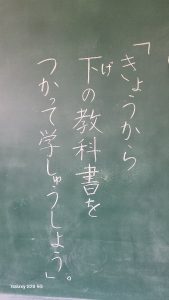 「きょうから
下げの教科書を
つかって学しゅうしよう」。